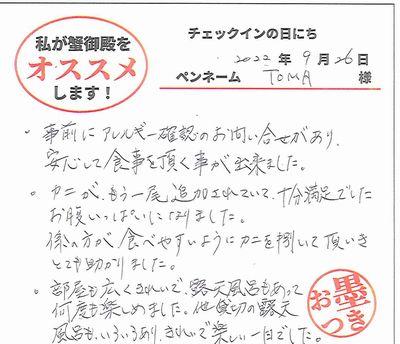 私が蟹御殿を
オススメ
します!
チェックインの日にち
2022年9月26日
ペンネーム TOMA 様
・事前にアレルギー確認のお問い合せがあり、
安心して食事を頂く事が出来ました。
・カニが、もう一尾追加されていて、十分満足でした
お腹いっぱいになりました。
係の方が食べやすいようにカニを捌いて頂いき
とても助かりました。
・部屋も広くきれいで、露天風呂もあって
何度も楽しめました。他貸切の露天
風呂も、いろいろあり、きれいで楽しい一日でした。
お墨つき